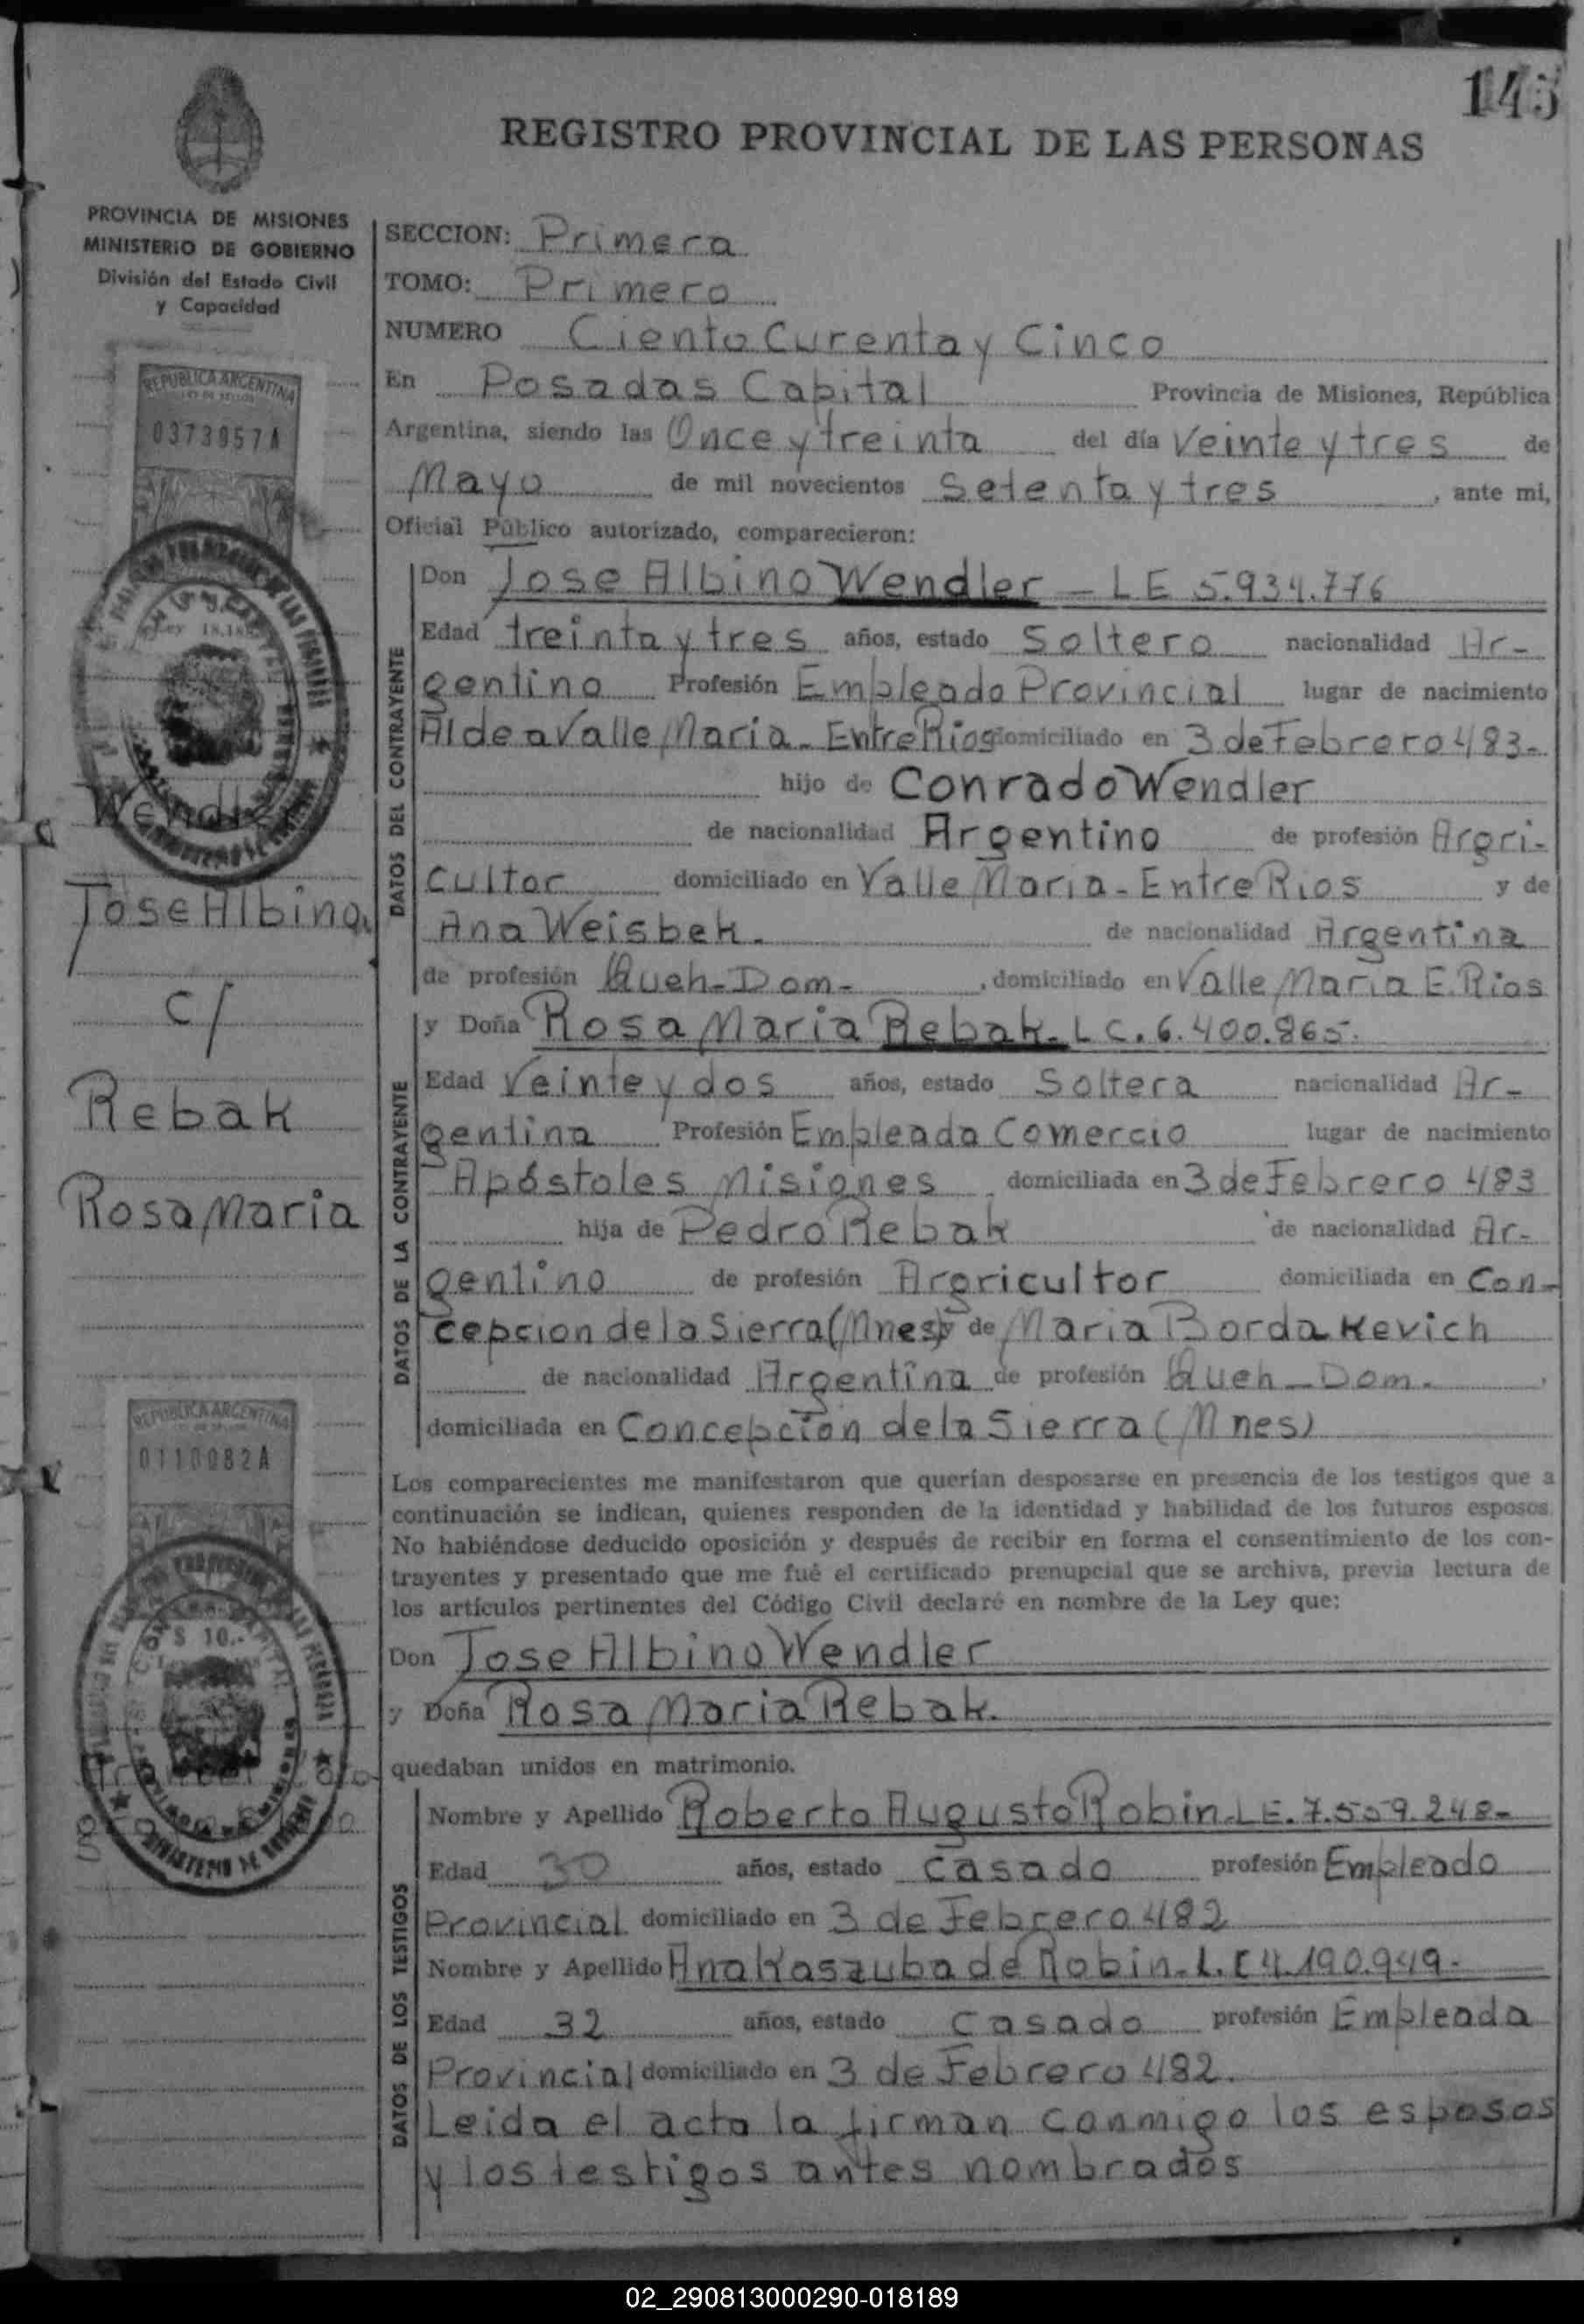 145
REGISTRO PROVINCIAL DE LAS PERSONAS
PROVINCIA DE MISIONES
MINISTERIO DE GOBIERNO
División del Estado Civil
y Capacidad
REPUBLICA ARGENTINA
LEY DE SELLOS
0373957A
Ley 18.188
Wendler
Jose Albino
c/
Rebak
Rosa Maria
REPUBLICA ARGENTINA
0110082A
$ 10.-
SECCION: Primera
TOMO: Primero
NUMERO Ciento Curenta y Cinco
En Posadas Capital Provincia de Misiones, República
Argentina, siendo las Once y treinta del día Veinte y tres de
Mayo de mil novecientos Setenta y tres, ante mi,
Oficial Público autorizado, comparecieron:
DATOS DEL CONTRAYENTE
Don Jose Albino Wendler - LE 5.934.776
Edad treinta y tres años, estado Soltero nacionalidad Ar-
gentino Profesión Empleado Provincial lugar de nacimiento
Aldea Valle Maria - Entre Rios domiciliado en 3 de Febrero 483-
hijo de Conrado Wendler
de nacionalidad Argentino de profesión Argri-
cultor domiciliado en Valle Maria - Entre Rios y de
Ana Weisbek. de nacionalidad Argentina
de profesión Queh-Dom-, domiciliado en Valle Maria E. Rios
DATOS DE LA CONTRAYENTE
y Doña Rosa Maria Rebak- LC. 6.400.865.
Edad Veinte y dos años, estado Soltera nacionalidad Ar-
gentina Profesión Empleada Comercio lugar de nacimiento
Apóstoles Misiones, domiciliada en 3 de Febrero 483
hija de Pedro Rebak de nacionalidad Ar-
gentino de profesión Argricultor domiciliada en Con-
cepcion de la Sierra (Mnes) y de Maria Bordakevich
de nacionalidad Argentina de profesión Queh-Dom.,
domiciliada en Concepcion de la Sierra (Mnes)
Los comparecientes me manifestaron que querían desposarse en presencia de los testigos que a
continuación se indican, quienes responden de la identidad y habilidad de los futuros esposos.
No habiéndose deducido oposición y después de recibir en forma el consentimiento de los con-
trayentes y presentado que me fué el certificado prenupcial que se archiva, previa lectura de
los artículos pertinentes del Código Civil declaré en nombre de la Ley que:
Don Jose Albino Wendler
y Doña Rosa Maria Rebak.
quedaban unidos en matrimonio.
DATOS DE LOS TESTIGOS
Nombre y Apellido Roberto Augusto Robin- LE. 7.559.248-
Edad 30 años, estado Casado profesión Empleado
Provincial domiciliado en 3 de Febrero 482
Nombre y Apellido Ana Kaszuba de Robin- L.C 4.190.949-
Edad 32 años, estado Casado profesión Empleada
Provincial domiciliado en 3 de Febrero 482.
Leida el acta la firman conmigo los esposos
y los testigos antes nombrados
02_290813000290-018189